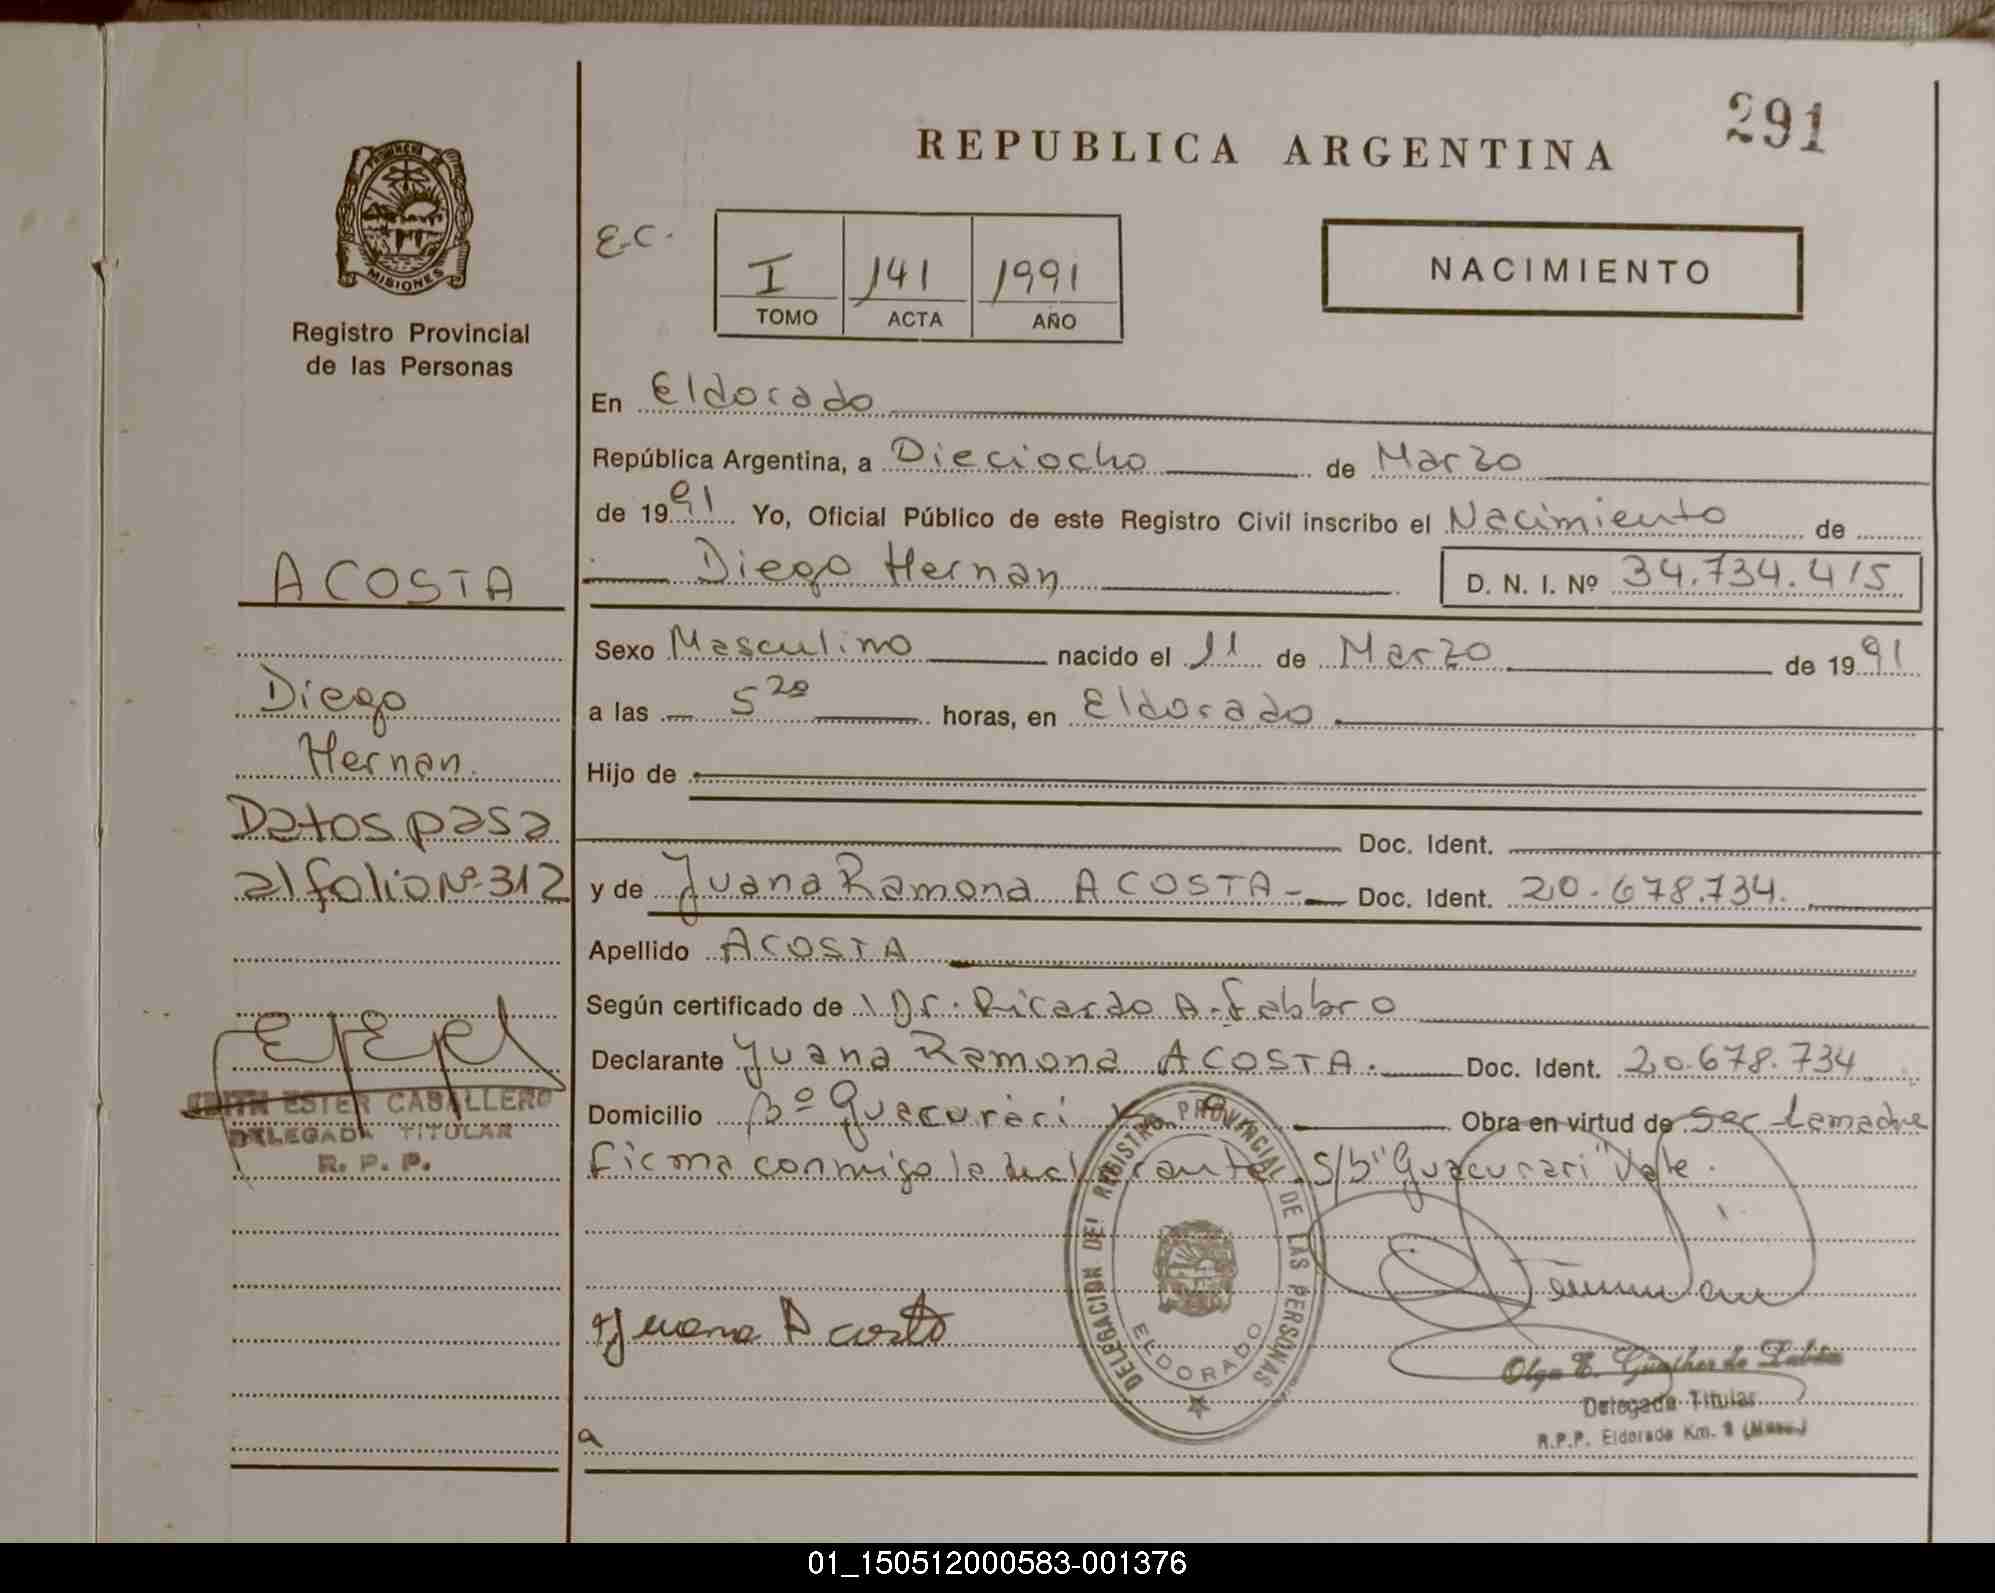 291
REPUBLICA ARGENTINA
PROVINCIA DE
MISIONES
Registro Provincial
de las Personas
E.C.
I 141 1991
TOMO ACTA AÑO
NACIMIENTO
En Eldorado
República Argentina, a Dieciocho de Marzo
de 1991 Yo, Oficial Público de este Registro Civil inscribo el Nacimiento de
Diego Hernan D. N. I. Nº 34.734.415
ACOSTA
Sexo Masculino nacido el 11 de Marzo de 1991
Diego
a las 5 20 horas, en Eldorado
Hernan.
Hijo de
Datos pasa
Doc. Ident.
al folio Nº 312
y de Juana Ramona ACOSTA- Doc. Ident. 20.678.734.
Apellido ACOSTA
Según certificado de Dr. Ricardo A. Fabbro
Declarante Juana Ramona ACOSTA. Doc. Ident. 20.678.734
EDITH ESTER CABALLERO
DELEGADA TITULAR
R. P. P.
Domicilio Bº Guacurari Obra en virtud de ser la madre
firma conmigo la declarante. S/b "Guacurari" Vale.
DELEGACION DEL REGISTRO PROVINCIAL DE LAS PERSONAS
ELDORADO
Juana Acosta
Olga E. Gunther de
Delegada Titular
R.P.P. Eldorado Km. 9
a
01_150512000583-001376